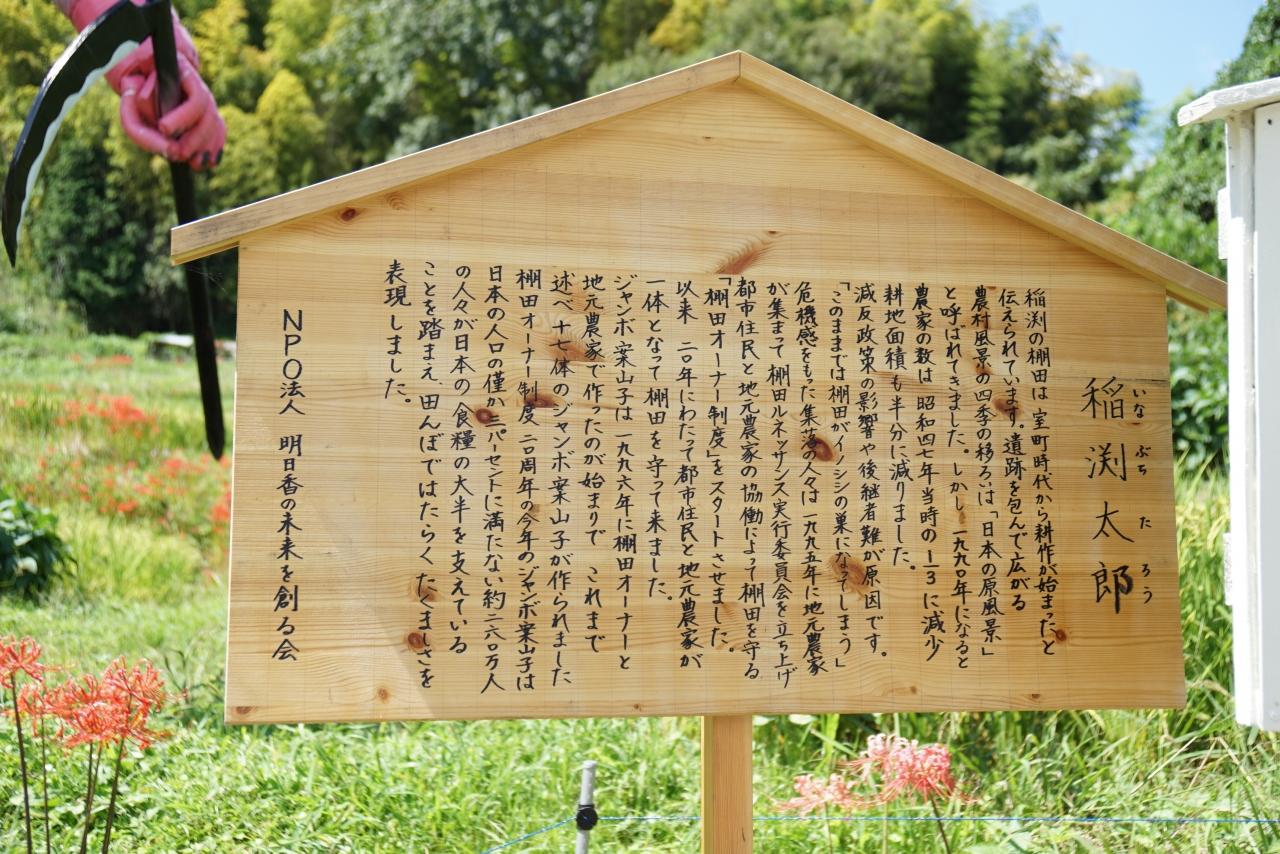 稲渕太郎
いな ぶち た ろう
稲渕の棚田は 室町時代から耕作が始まったと
伝えられています。遺跡を包んで広がる
農村風景の四季の移ろいは「日本の原風景」
と呼ばれてきました。しかし 一九九〇年になると
農家の数は 昭和四七年当時の1/3に減少
耕地面積も半分に減りました。
減反政策の影響や後継者難が原因です。
「このままでは棚田がイノシシの巣になってしまう」
危機感をもった集落の人々は 一九九五年に地元農家
が集まって棚田ルネッサンス実行委員会を立ち上げ
都市住民と地元農家の協働によって棚田を守る
「棚田オーナー制度」をスタートさせました。
以来 二〇年にわたって都市住民と地元農家が
一体となって棚田を守って来ました。
ジャンボ案山子は 一九九六年に棚田オーナーと
地元農家で作ったのが始まりで これまで
述べ 十七体のジャンボ案山子が作られました
棚田オーナー制度 二〇周年の今年のジャンボ案山子は
日本の人口の僅か 二パーセントに満たない約二六〇万人
の人々が日本の食糧の大半を支えている
ことを踏まえ、田んぼではたらく たくましさを
表現しました。
NPO法人 明日香の未来を創る会